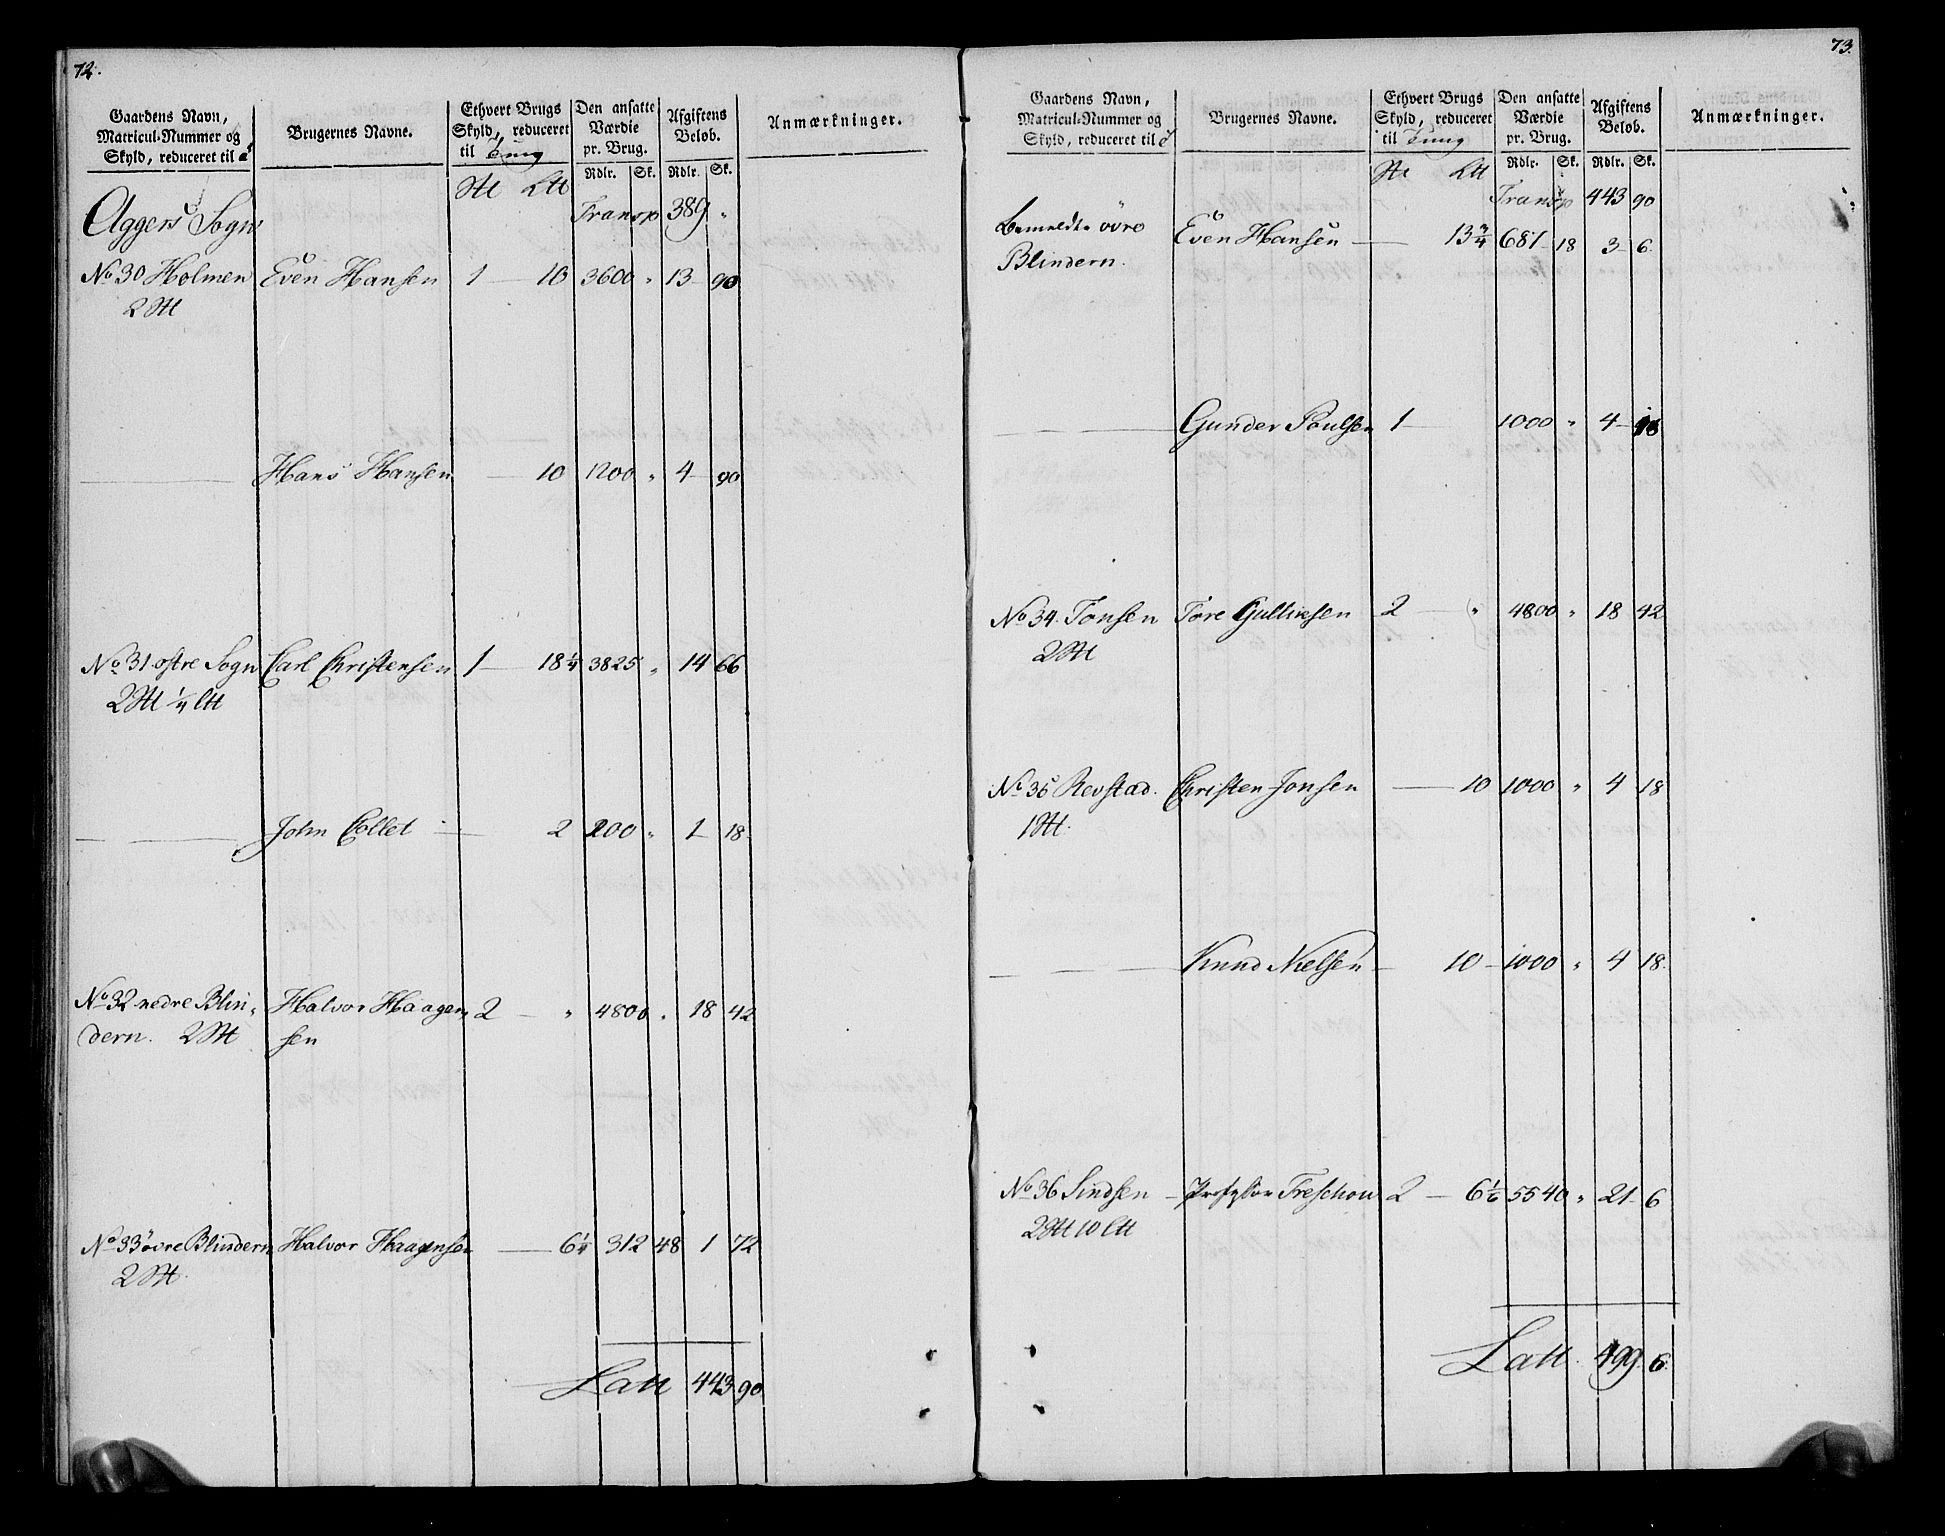 72.
Gaardens Navn, Matricul-Nummer og Skyld, reduceret til
Brugernes Navne.
Ethvert Brugs Skyld, reduceret til Tung
Den ansatte Værdie pr. Brug.
Afgiftens Beløb.
Anmærkninger.
Rdlr. Sk. Rdlr. Sk.
Aggers Sogn Transp 389 "
No 30 Holmen Even Hansen 1 — 10 3600 " 13 90
2
Hans Hansen — 10 1200 " 4 90
No 31 østre Sogn Carl Christensen 1 — 18 1/4 3825 " 14 66
2 1/4
John Collet — 2 200 " 1 18
No 32 nedre Blin- Halvor Haagen 2 — " 4800 " 18 42
dern. 2 sen
No 33 øvre Blindern Halvor Haagensen — 6 1/4 312 48 1 72
2
Latt 443 90
73.
Gaardens Navn, Matricul-Nummer og Skyld, reduceret til
Brugernes Navne.
Ethvert Brugs Skyld, reduceret til Tung
Den ansatte Værdie pr. Brug.
Afgiftens Beløb.
Anmærkninger.
Rdlr. Sk. Rdlr. Sk.
Transp 443 90
Bemeldte øvre Even Hansen — 13 3/4 681 18 3 6
Blindern.
Gunder Poulsen 1 — 1000 " 4 18
No 34. Tonsen Tore Gulliksen 2 — " 4800 " 18 42
2
No 35 Revstad. Christen Jonsen — 10 1000 " 4 18
1
Knud Nielsen — 10 1000 " 4 18
No 36 Sindsen Professor Treschow 2 — 6 1/6 5540 " 21 6
2 10
Latt. 499 6